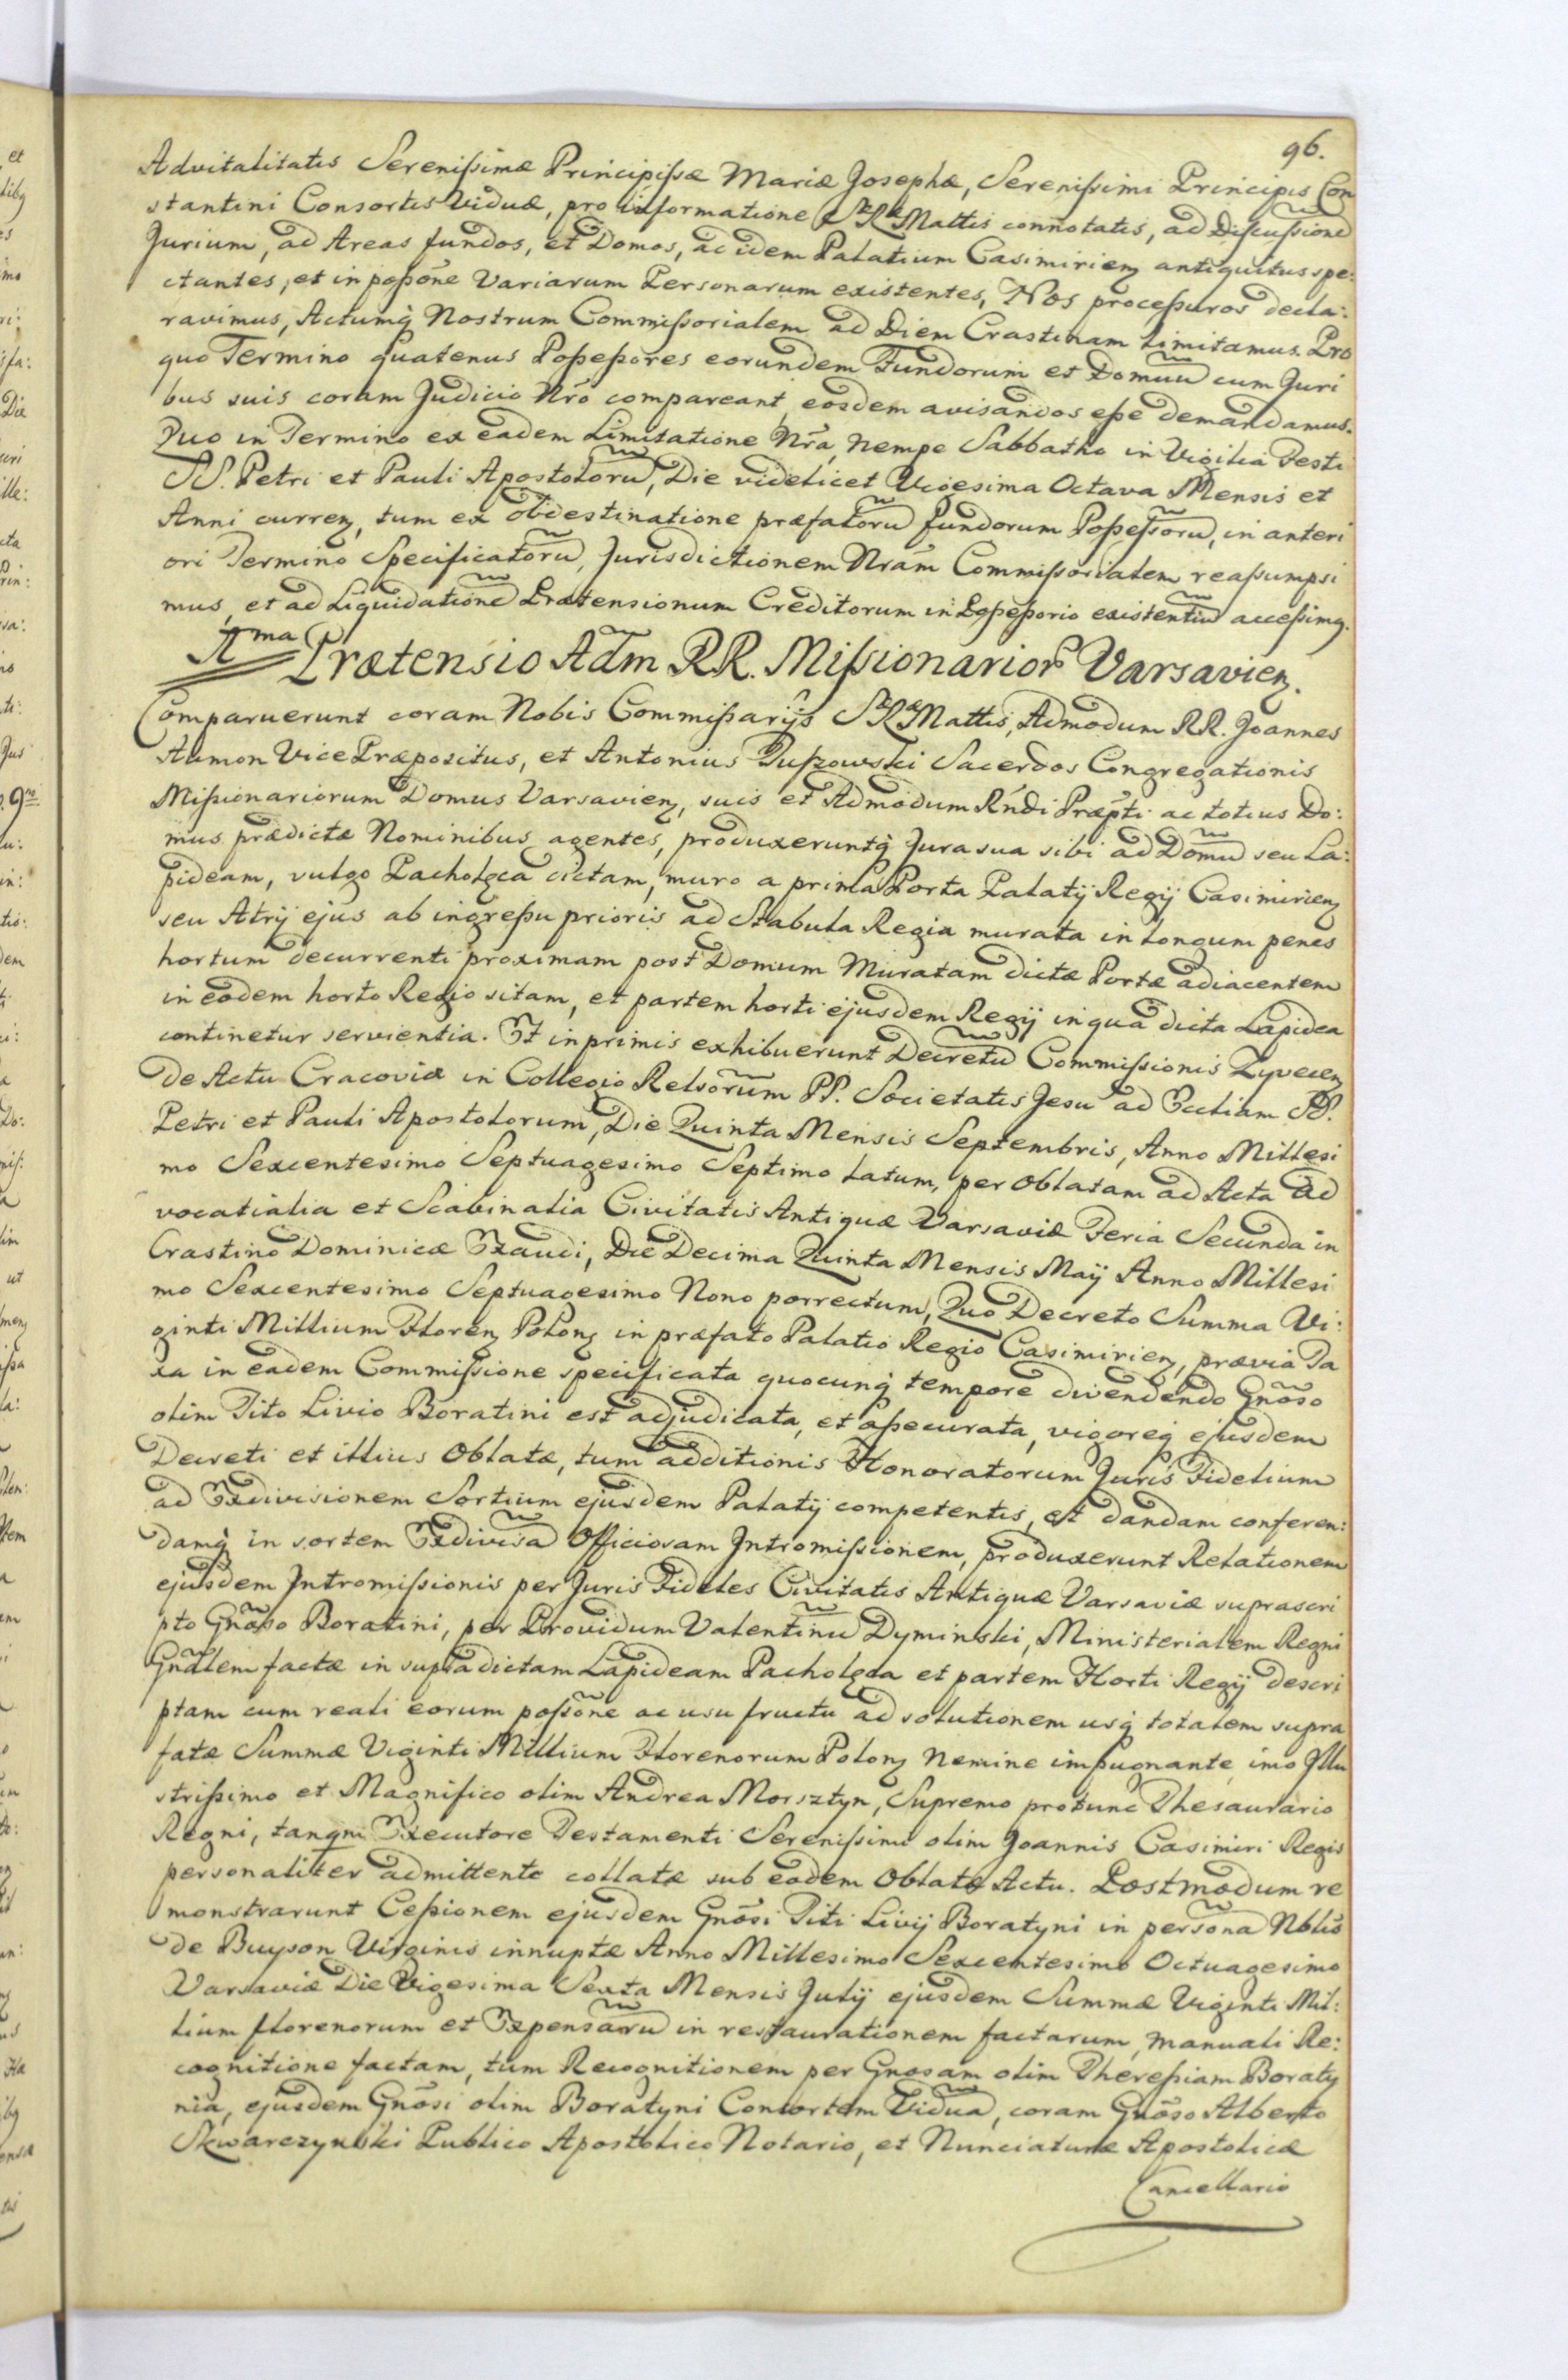 96.
Advitalitatis Serenissimæ Principissæ Mariæ Josephæ, Serenissimi Principis Con
stantini Consortis Viduæ, pro informatione Sæ Ræ Mattis connotatis, ad Discussionẽ
Jurium, ad Areas fundos, et Domos, ad idem Palatium Casimirien̄ antiquitus spe:
ctantes, et in possōne Variarum Personarum existentes, Nos processuros decla:
ravimus, Actumq̢ Nostrum Commissorialem ad Diem Crastinam Limitamus. Pro
quo Termino quatenus Possessores eorundem Fundorum et Domuũ cum Juri
bus suis coram Judicio Nr̃o compareant, eosdem avisandos esse demandamus.
Quo in Termino ex eadem Limitatione Nr̃a, nempe Sabbatho in Vigilia Festi
SS. Petri et Pauli Apostolorũ, Die videlicet Vigesima Octava Mensis et
Anni curren̄, tum ex obdestinatione præfatorũ fundorum Possessorũ, in anteri
ori Termino Specificatorũ, Jurisdictionem Nr̃am Commissorialem reassumpsi
mus, et ad Liquidationẽ Prætensionum Creditorum in Possessorio existentiũ accessimq̢.
Ama Prætensio Adm̃ RR. Missionarior̃ Varsavien̄.
Comparuerunt coram Nobis Commissarijs Sæ Ræ Mattis, Admodum RR. Joannes
Aumon Vice Præpositus, et Antonius Tuszowski Sacerdos Congregationis
Missionariorum Domus Varsavien̄, suis et Admodum Rñdi Præpti ac totius Do:
mus prædictæ Nominibus agentes, produxeruntq̢ Jura sua sibi ad Domũ seu La:
pideam, vulgo Pacholęca dictam, muro a prima Porta Palatij Regij Casimirien̄
seu Atrij ejus ab ingressu prioris ad Stabula Regia murata in longum penes
hortum decurrenti proximam post Domum Muratam dictæ Portæ adiacentem
in eodem horto Regio sitam, et partem horti ejusdem Regij in qua dicta Lapidea
continetur servientia. Et inprimis exhibuerunt Decretũ Commissionis Zyvecen̄
de Actu Cracoviæ in Collegio Relsorũm PP. Societatis Jesu ad Ecctiam SS.
Petri et Pauli Apostolorum, Die Quinta Mensis Septembris, Anno Millesi
mo Sexcentesimo Septuagesimo Septimo Latum, per Oblatam ad Acta Ad
vocatialia et Scabinalia Civitatis Antiquæ Varsaviæ Feria Secunda in
Crastino Dominicæ Exaudi, Die Decima Quinta Mensis Maij Anno Millesi
mo Sexcentesimo Septuagesimo Nono porrectum, Quo Decreto Summa Vi:
ginti Millium Floren̄ Polon̄ in præfato Palatio Regio Casimirien̄, prævia Ta
xa in eadem Commissione specificata quocunq̢ tempore divendendo Gnõso
olim Tito Livio Boratini est adjudicata, et assecurata, vigoreq̢ ejusdem
Decreti et illius Oblatæ, tum additionis Honoratorum Juris Fidelium
ad Exdivisionem Sortium ejusdem Palatij competentis, est dandam conferen:
damq̢ in sortem Exdivisã Officiosam Intromissionem, produxerunt Relationem
ejusdem Intromissionis per Juris Fideles Civitatis Antiquæ Varsaviæ suprascri
pto Gnõso Boratini, per Providum Valentinũ Dyminski, Ministerialem Regni
Gnãlem factæ in supradictam Lapideam Pacholęca et partem Horti Regij descri
ptam cum reali eorum possõne ac usu fructu ad solutionem usq̢ totalem supra
fatæ Summæ Viginti Millium Florenorum Polon̄ nemine impugnante, imo Illu
strissimo et Magnifico olim Andrea Morsztyn, Supremo protunc Thesaurario
Regni, tanqm̃ Executore Testamenti Serenissimi olim Joannis Casimiri Regis
personaliter admittente collatæ sub eodem Oblatæ Actu. Postmodum re
monstrarunt Cessionem ejusdem Gnõsi Titi Livij Boratyni in persona Nblis
de Buyson Virginis innuptæ Anno Millesimo Sexcentesimo Octuagesimo
Varsaviæ Die Vigesima Sexta Mensis Julij ejusdem Summæ Viginti Mil:
lium florenorum et Expensarũ in restaurationem factarum, manuali Re:
cognitione factam, tum Recognitionem per Gnosam olim Theressiam Boraty
nia, ejusdem Gnõsi olim Boratyni Consortem Viduã, coram Gnõso Alberto
Skwarczynski Publico Apostolico Notario, et Nunciaturæ Apostolicæ
Cancellario